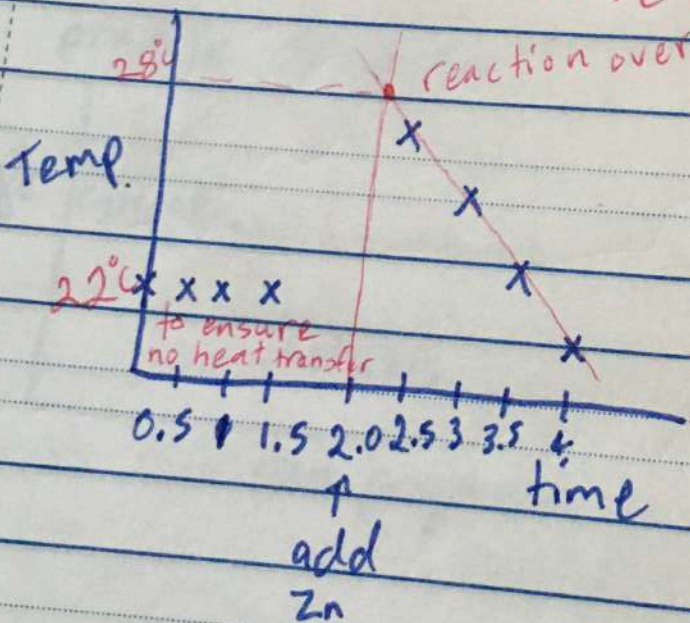 28°C
reaction over
Temp.
22°C
to ensure
no heat transfer
0.5 1 1.5 2.0 2.5 3 3.5 4
time
add
Zn